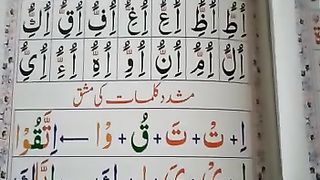 اُطّ اُظّ اُعّ اُغّ اُفّ اُقّ اُکّ
اُلّ اُمّ اُنّ اُوّ اُہّ اُءّ اُیّ
مشدد کلمات کی مشق
اِ + تْ + تَ + قُ + وْا ← اِتَّقُوْا